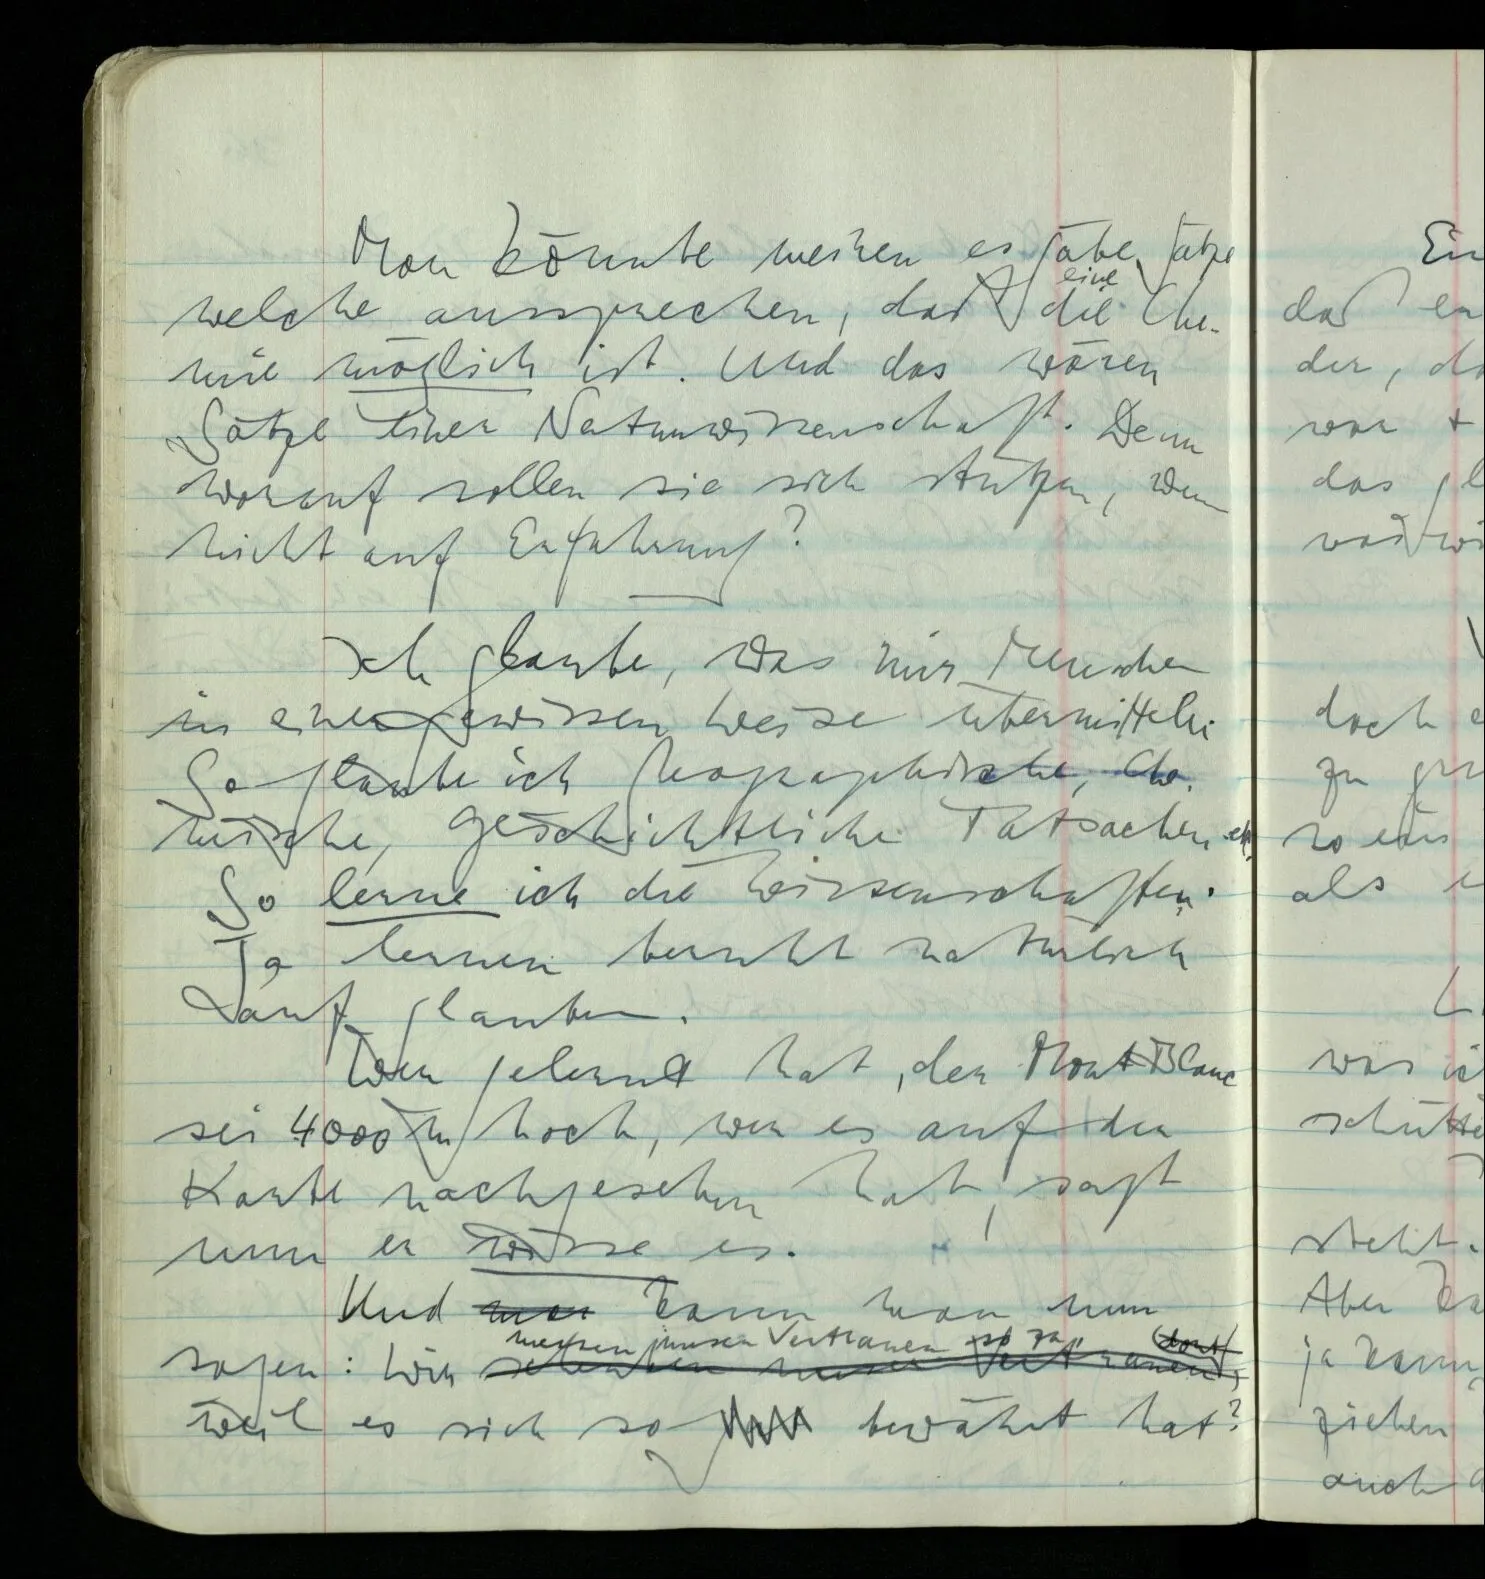 Man könnte meinen es gäbe Sätze
welche aussprechen, daß eine die Che-
mie möglich ist. Und das wären
Sätze einer Naturwissenschaft. Denn
worauf sollen sie sich stützen, wenn
nicht auf Erfahrung?
Ich glaube, was mir Menschen
in einer gewissen Weise übermitteln.
So glaube ich geographische, che-
mische, geschichtliche Tatsachen etc.
So lerne ich die Wissenschaften.
Ja lernen beruht natürlich
auf glauben.
Wer gelernt hat, der Mont Blanc
sei 4000 m hoch, wer es auf der
Karte nachgesehen hat, sagt
nun er wisse es.
Und man kann man nun
messen unser Vertrauen so zu, (dort
sagen: Wir schenken unser Vertrauen,
weil es sich so bewährt hat?
Ein
daß
der, da
war
das gl
was wi
doch
zu
so
als
was
schütte
steht.
Aber
ja kann
ziehen
auch